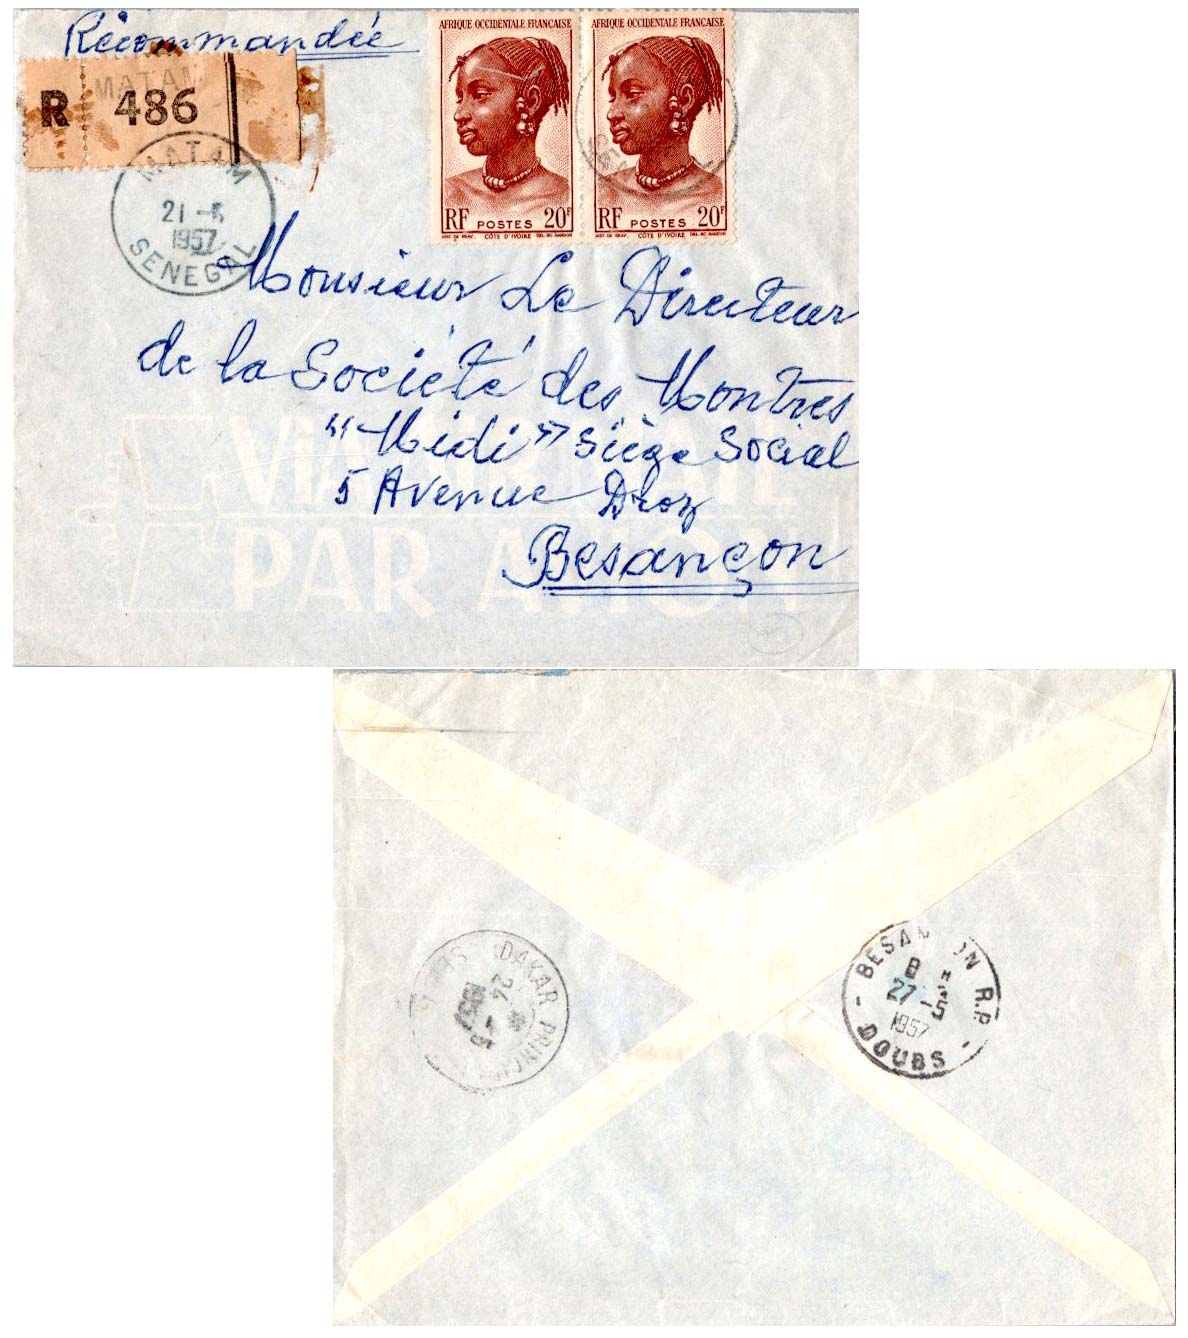 Récommandée
MATAM
R 486
MATAM
21 -5
1957
SENEGAL
AFRIQUE OCCIDENTALE FRANÇAISE
RF POSTES 20F
CÔTE D'IVOIRE
AFRIQUE OCCIDENTALE FRANÇAISE
RF POSTES 20F
CÔTE D'IVOIRE
SEN
Monsieur Le Directeur
de la Société des Montres
"Midi" Siège Social
5 Avenue Droz
Besançon
VIA AIR MAIL
PAR AVION
DAKAR PRINCIP
24 -5
1957
BESAN ON R.P.
27 -5
1957
DOUBS